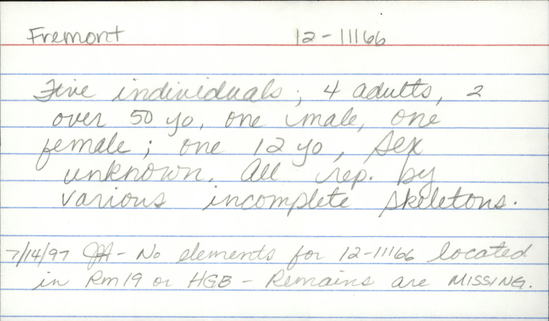 Fremont 12-11166
Five individuals; 4 adults, 2
over 50 yo, one male, one
female; one 12 yo, sex
unknown. All rep. by
various incomplete skeletons.
7/14/97 - No elements for 12-11166 located
in Rm 19 or HGB - Remains are MISSING.